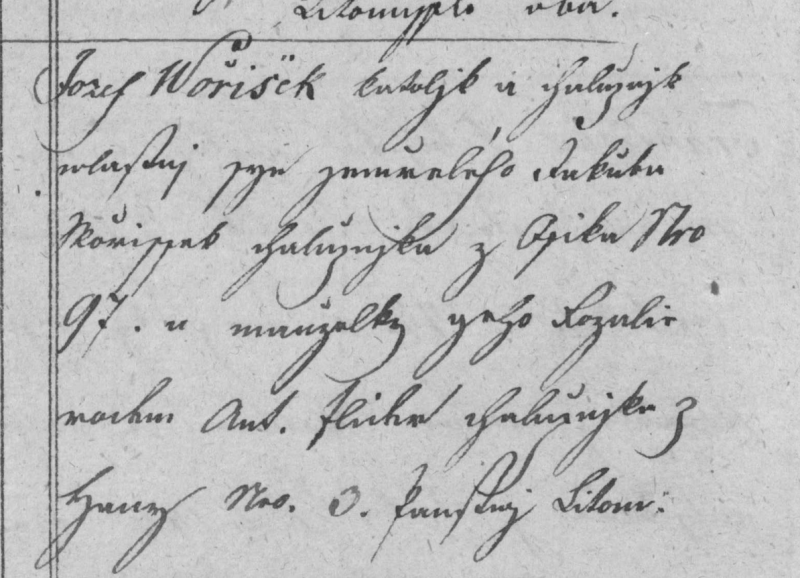 Litomyssl oba.
Jozef Wořišek katoljk a chalupnjk
wlastnj syn zemrelého Jakuba
Wořissek chalupnjka z Nro
97. a manzelky geho Rozalie
rodem Ant. Flidr chalupnjka z
Nro. 3. Panstwj Litom: